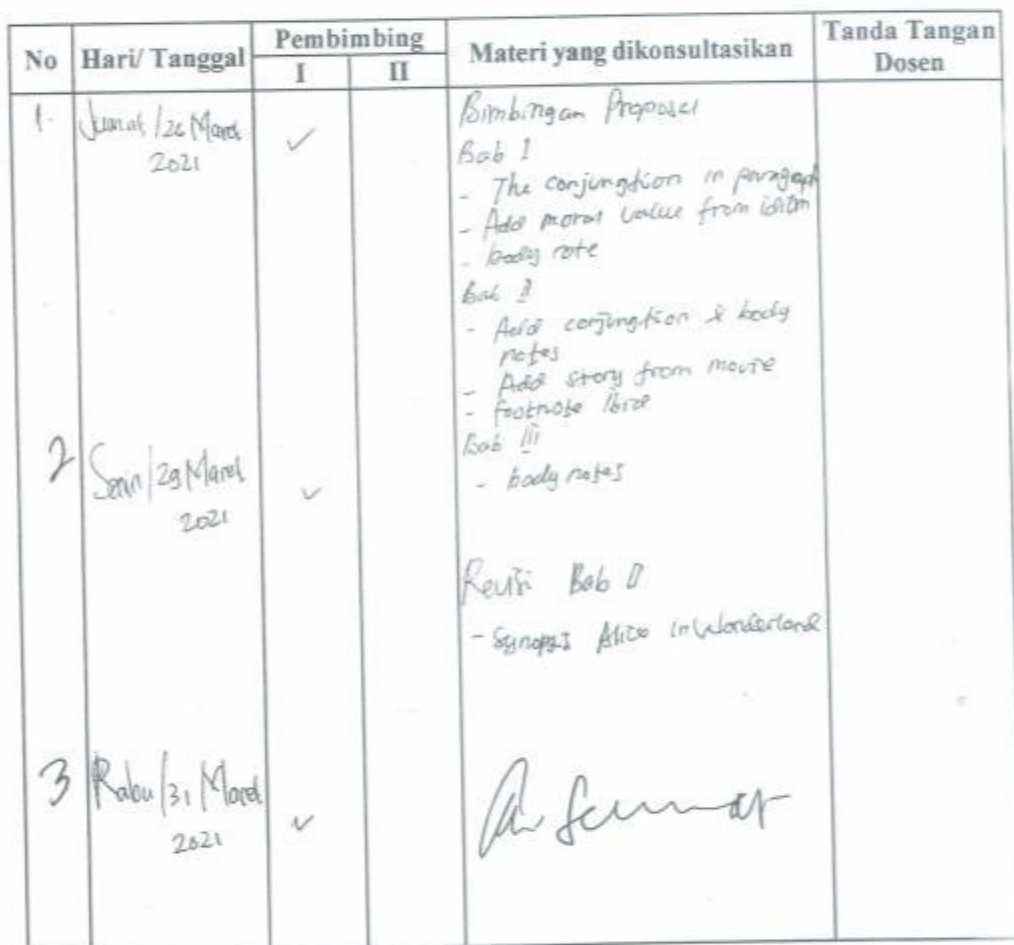 No Hari/ Tanggal Pembimbing Materi yang dikonsultasikan Tanda Tangan Dosen
I II
1. Jumat /26 Maret 2021 ✓ Bimbingan Proposal
Bab I
- The conjungtion in paragraph
- Add moral value from
- body note
Bab II
- Add conjungtion & body
notes
- Add story from movie
- footnote
Bab III
- body notes
2 Senin/29 Maret 2021 ✓
Revisi Bab II
- Synopsis Alice in Wonderland
3 Rabu/31 Maret 2021 ✓